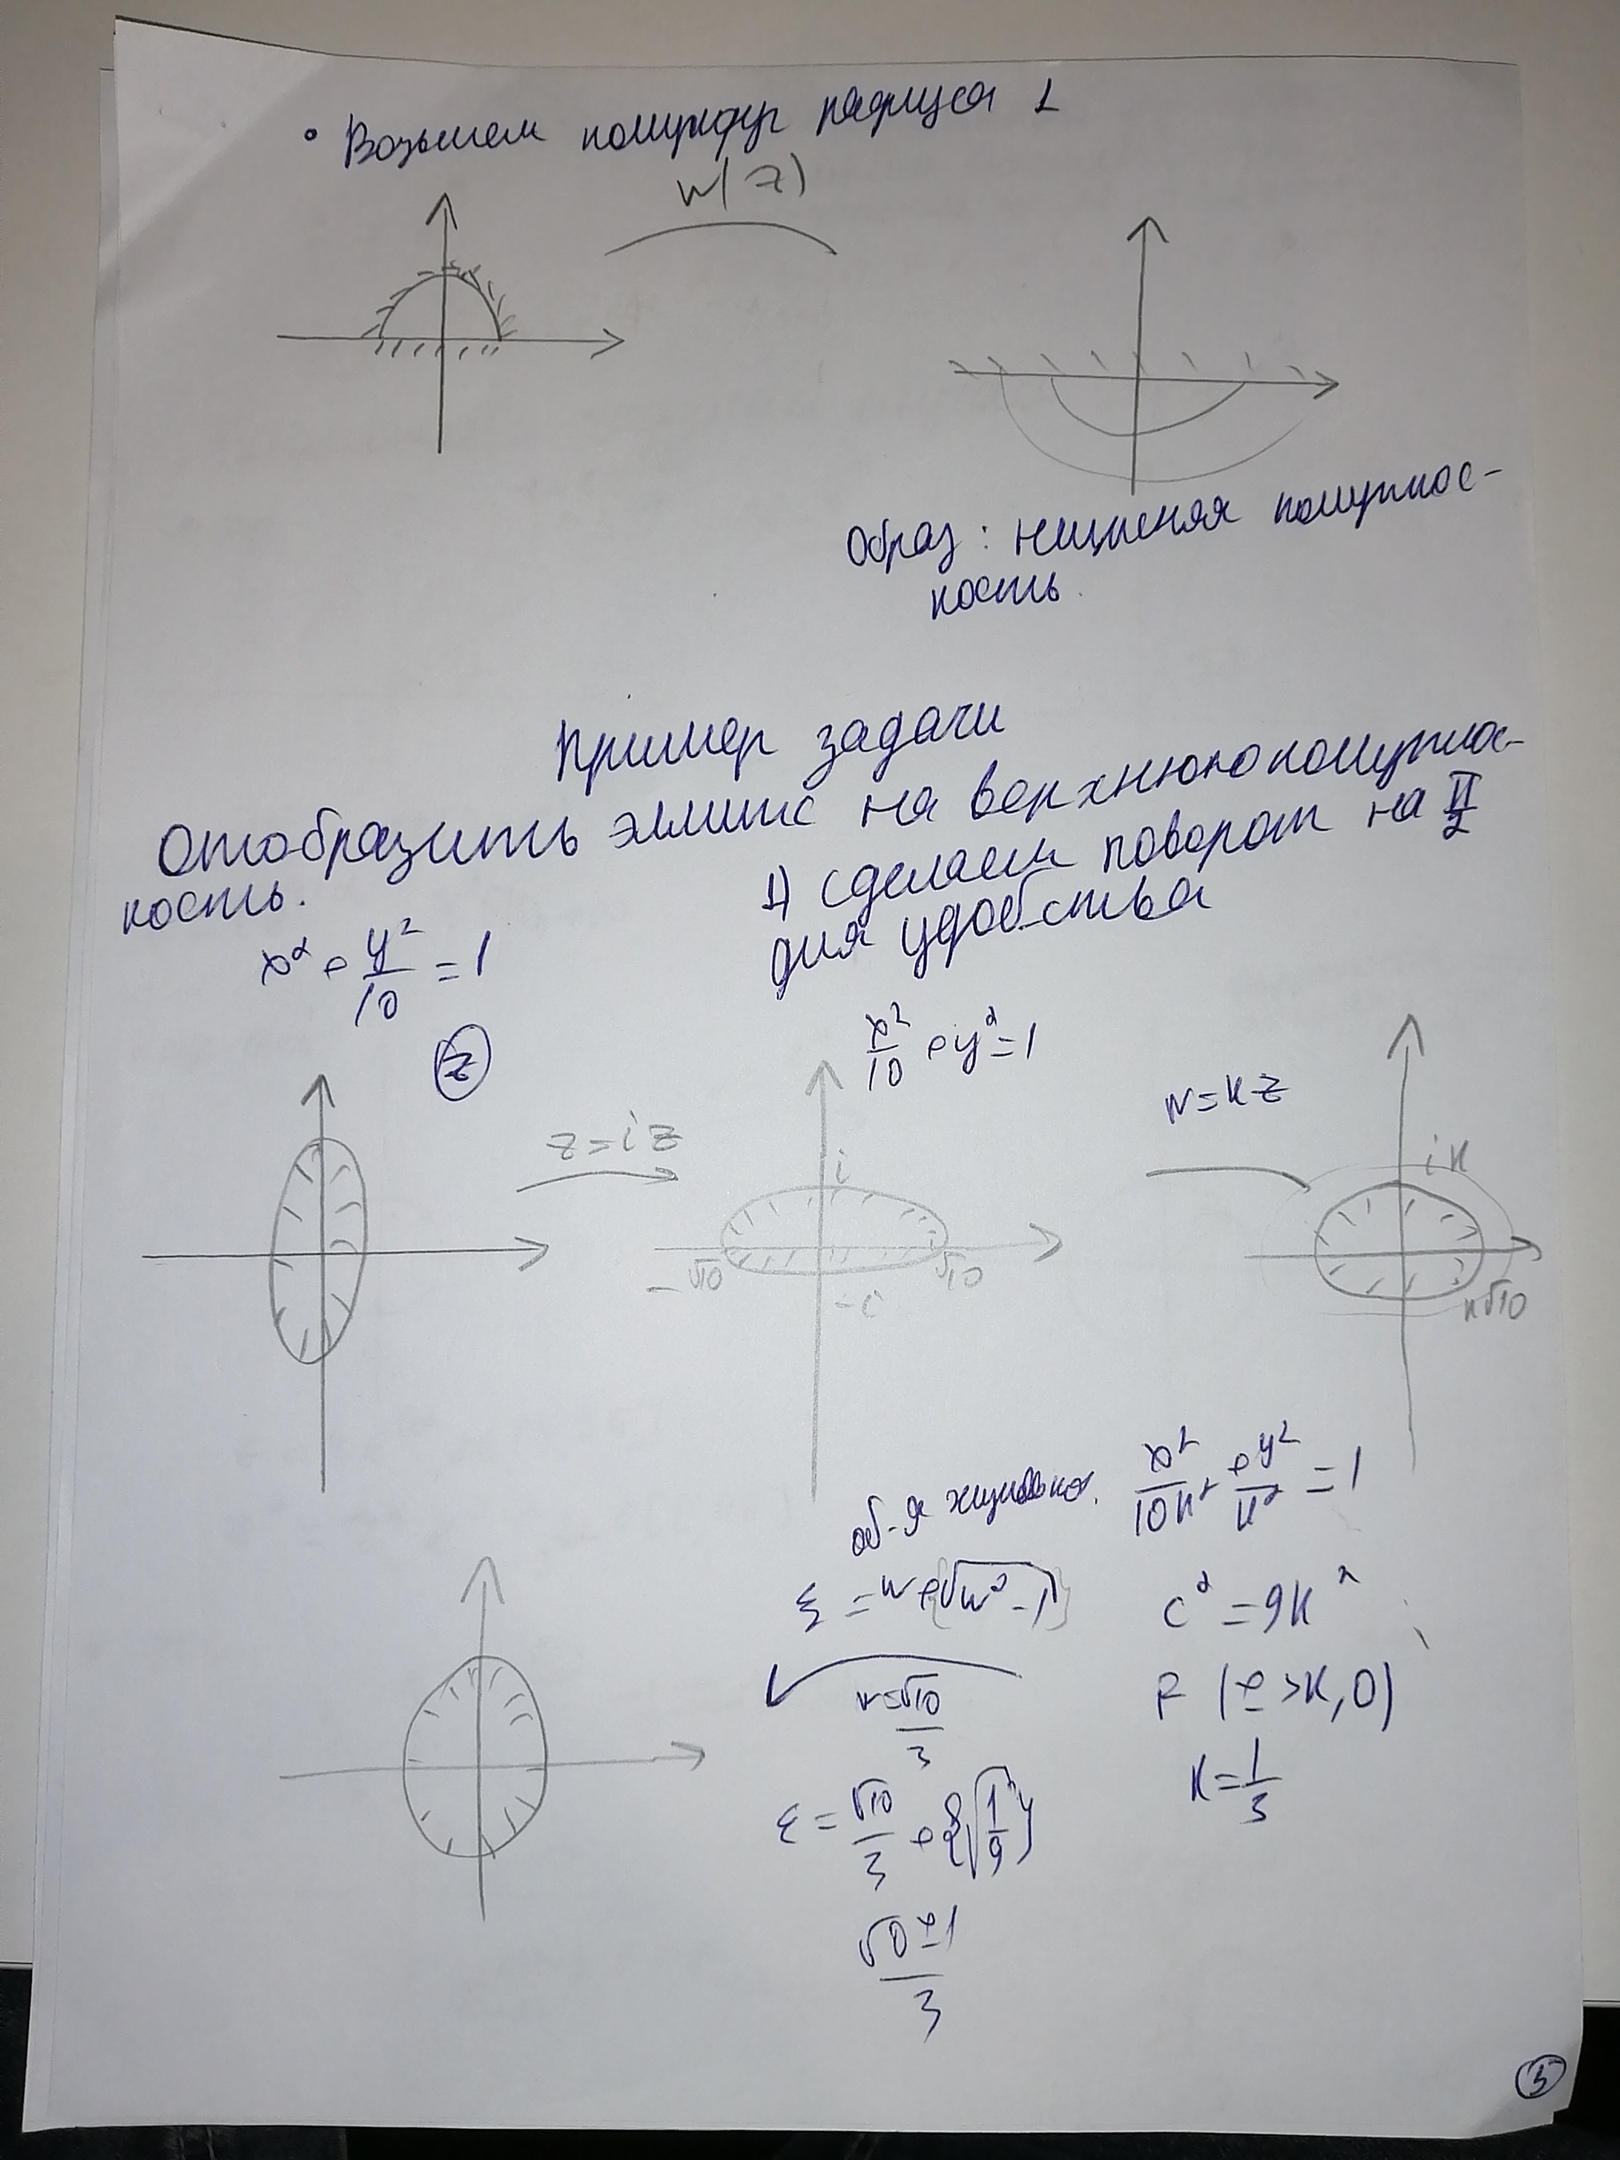 • Возьмем полукруг радиуса 1
w(z)
Образ: нижняя полуплос-
кость.
Пример задачи
Отобразить эллипс на верхнюю полуплос-
кость.
1) сделаем поворот на π/2
для удобства
x² + y²/10 = 1
z
x²/10 + y² = 1
z=iz
w=kz
i
-√10
√10
-i
ik
k√10
об-я жуковско.
x²/10k² + y²/k² = 1
ξ = w+{√w²-1}
c² = 9k²
w=√10/3
F (±3k,0)
k=1/3
ξ = √10/3 + {√1/9}
√10±1/3
3